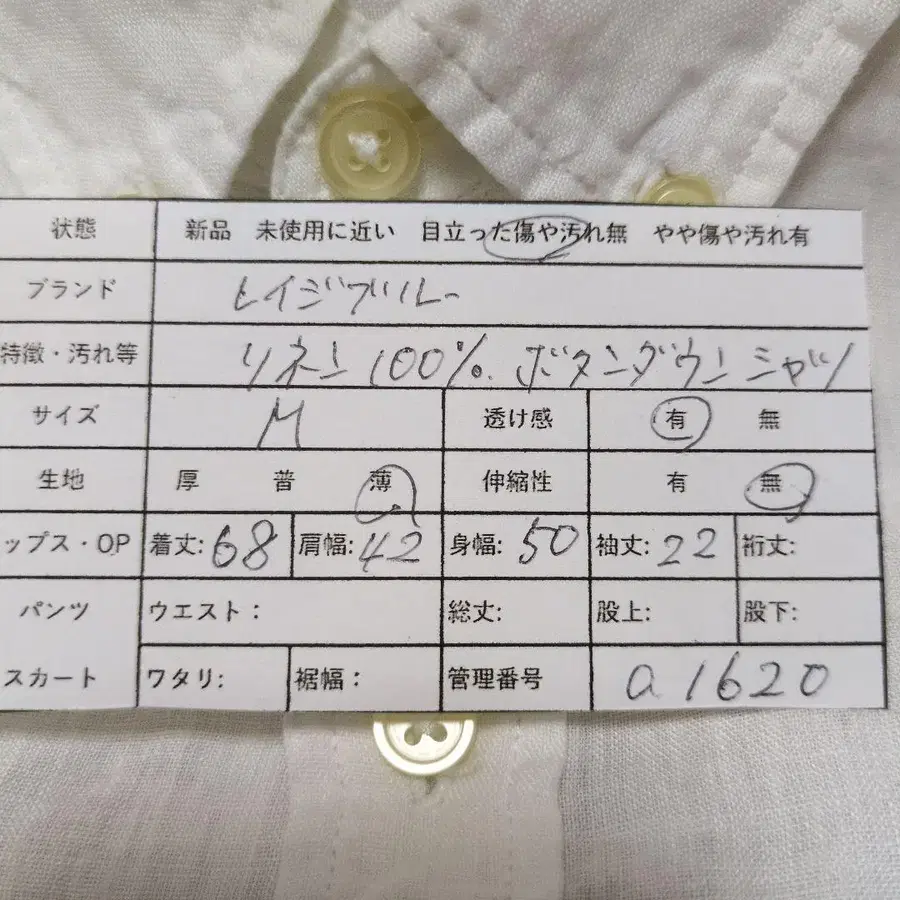 状態 新品 未使用に近い 目立った傷や汚れ無 やや傷や汚れ有
ブランド レイジブルー
特徴・汚れ等 リネン100%. ボタンダウンシャツ
サイズ M 透け感 有 無
生地 厚 普 薄 伸縮性 有 無
ップス・OP 着丈: 68 肩幅: 42 身幅: 50 袖丈: 22 裄丈:
パンツ ウエスト: 総丈: 股上: 股下:
スカート ワタリ: 裾幅: 管理番号 a1620